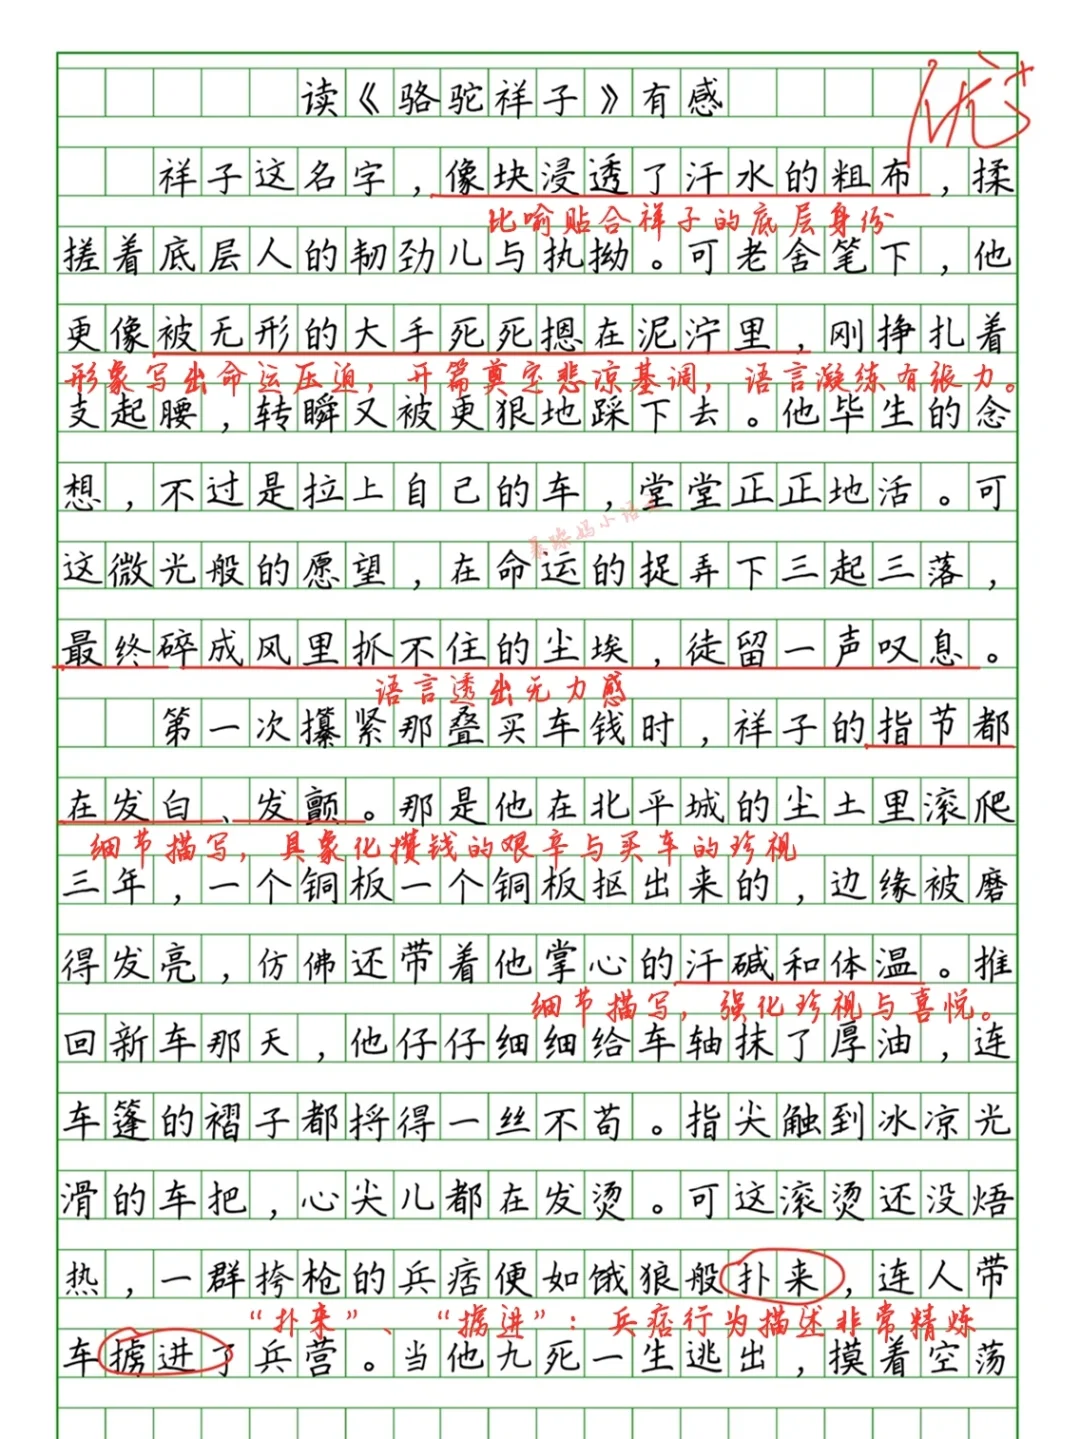 读《骆驼祥子》有感
优+
祥子这名字，像块浸透了汗水的粗布，揉
比喻贴合祥子的底层身份
搓着底层人的韧劲儿与执拗。可老舍笔下，他
更像被无形的大手死死摁在泥泞里，刚挣扎着
形象写出命运压迫，开篇奠定悲凉基调，语言凝练有张力。
支起腰，转瞬又被更狠地踩下去。他毕生的念
想，不过是拉上自己的车，堂堂正正地活。可
这微光般的愿望，在命运的捉弄下三起三落，
最终碎成风里抓不住的尘埃，徒留一声叹息。
语言透出无力感
第一次攥紧那叠买车钱时，祥子的指节都
在发白、发颤。那是他在北平城的尘土里滚爬
细节描写，具象化攒钱的艰辛与买车的珍视
三年，一个铜板一个铜板抠出来的，边缘被磨
得发亮，仿佛还带着他掌心的汗碱和体温。推
细节描写，强化珍视与喜悦。
回新车那天，他仔仔细细给车轴抹了厚油，连
车篷的褶子都捋得一丝不苟。指尖触到冰凉光
滑的车把，心尖儿都在发烫。可这滚烫还没焐
热，一群挎枪的兵痞便如饿狼般扑来，连人带
“扑来”、“掳进”：兵痞行为描述非常精炼
车掳进了兵营。当他九死一生逃出，摸着空荡